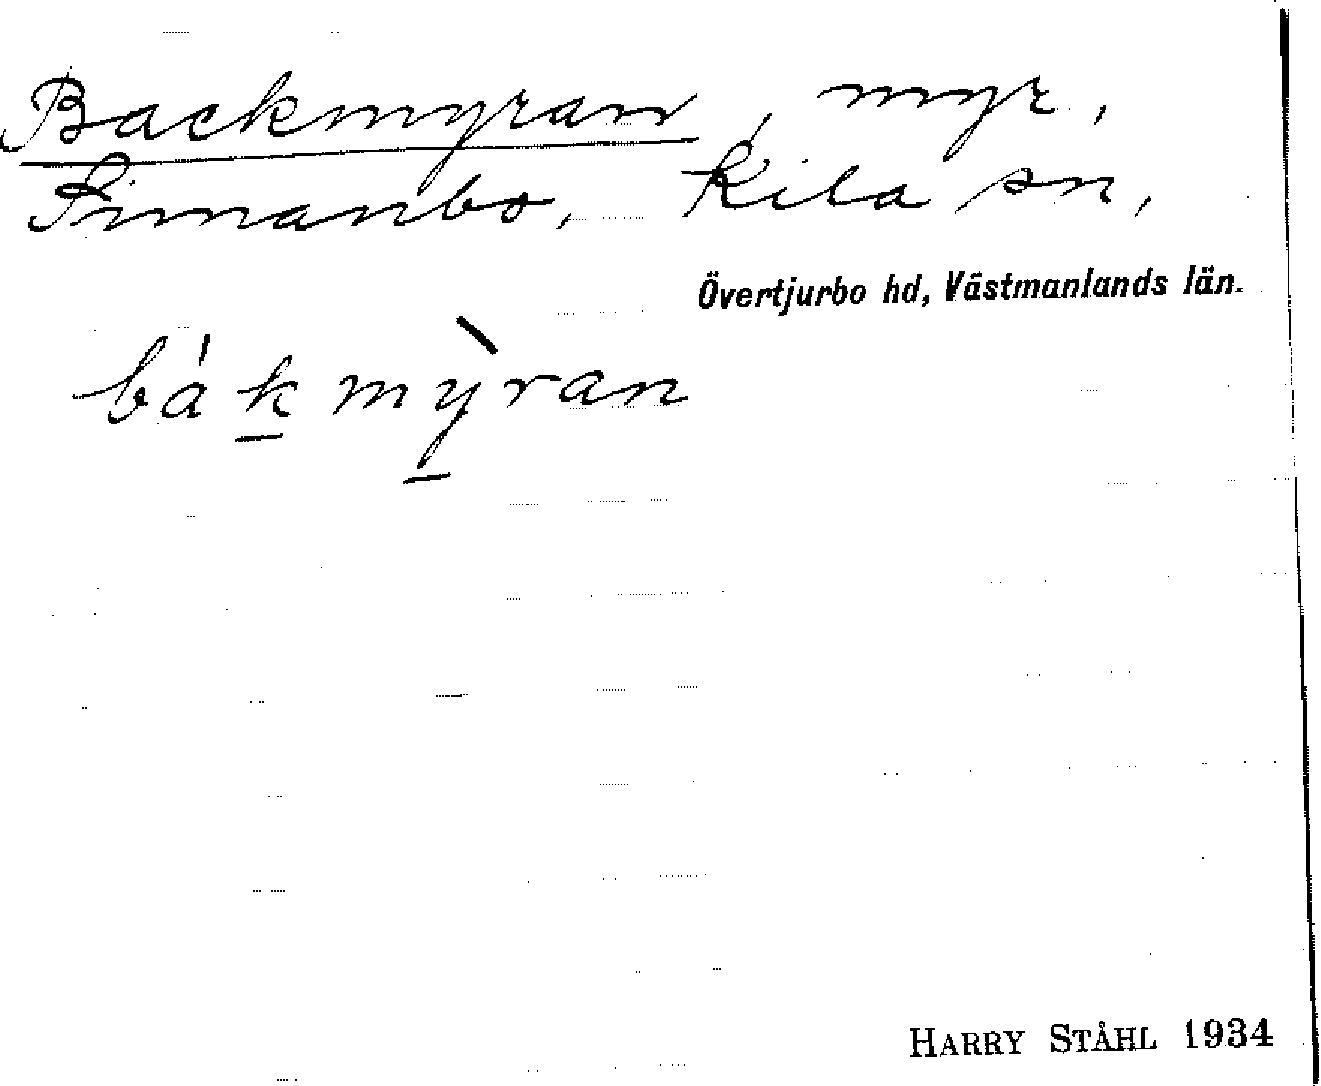 Backmyran, myr,
Finnanbo, Kila sn,
Övertjurbo hd, Västmanlands län.
bákmỳran
HARRY STÅHL 1934